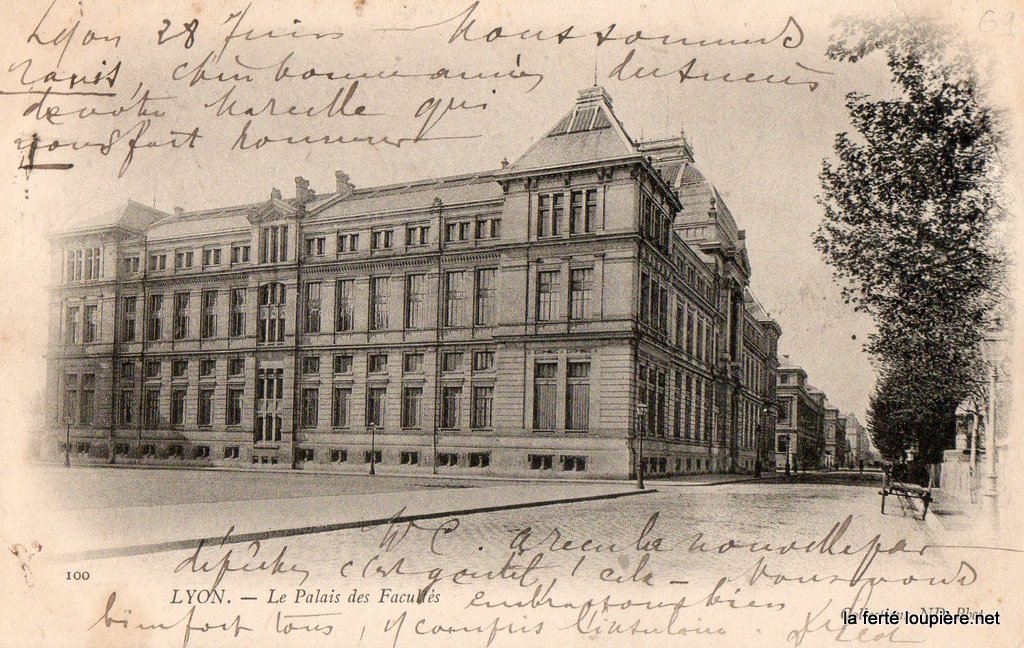 Lyon 28 Juin — Nous sommes
ravis, bien bonne année
dévoté Marcelle qui
vous fait honneur
W C. a reçu la nouvelle par
dépêche c'est gentil ! cela — Nous vous
100
LYON. — Le Palais des Facultés
embrassons bien
bien fort tous, y compris
Collection ND Phot.
la ferté loupière.net